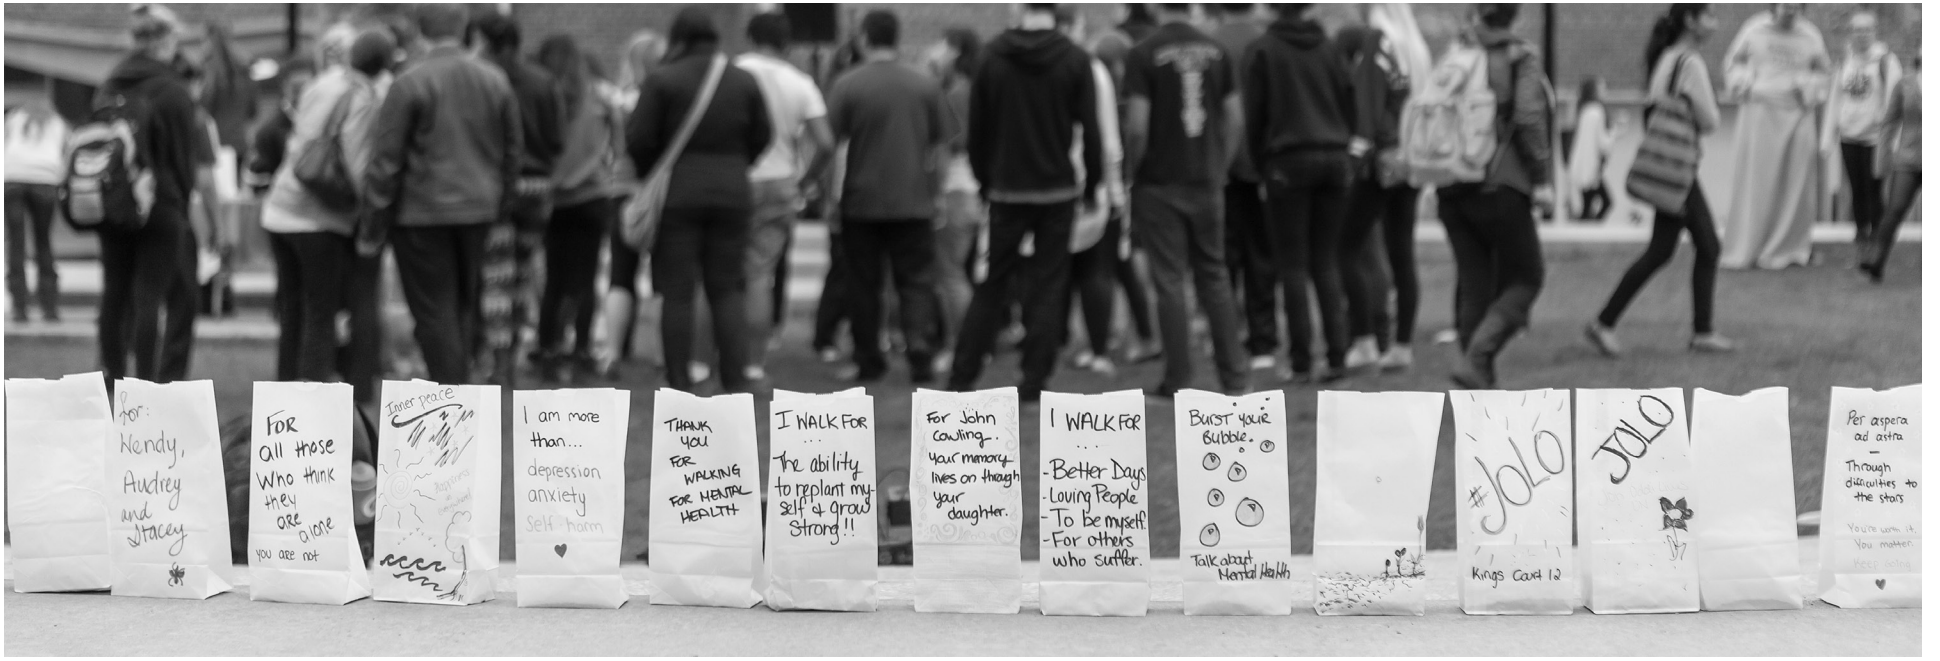 for:
Wendy,
Audrey
and
Stacey
FOR
all those
Who think
they
are
alone
you are not
Inner peace
I am more
than...
depression
anxiety
Self harm
THANK
YOU
FOR
WALKING
FOR MENTAL
HEALTH
I WALK FOR
...
The ability
to replant my-
self & grow
Strong!!
For John
Cowling.
your memory
lives on through
your
daughter.
I WALK FOR
...
- Better Days
- Loving People
- To be myself.
- For others
who suffer.
BURST YOUR
Bubble.
Talk about
Mental Health
#JOLO
Kings Court 12
JOLO
Per aspera
ad astra
—
Through
difficulties to
the stars
You're worth it.
You matter.
Keep going.